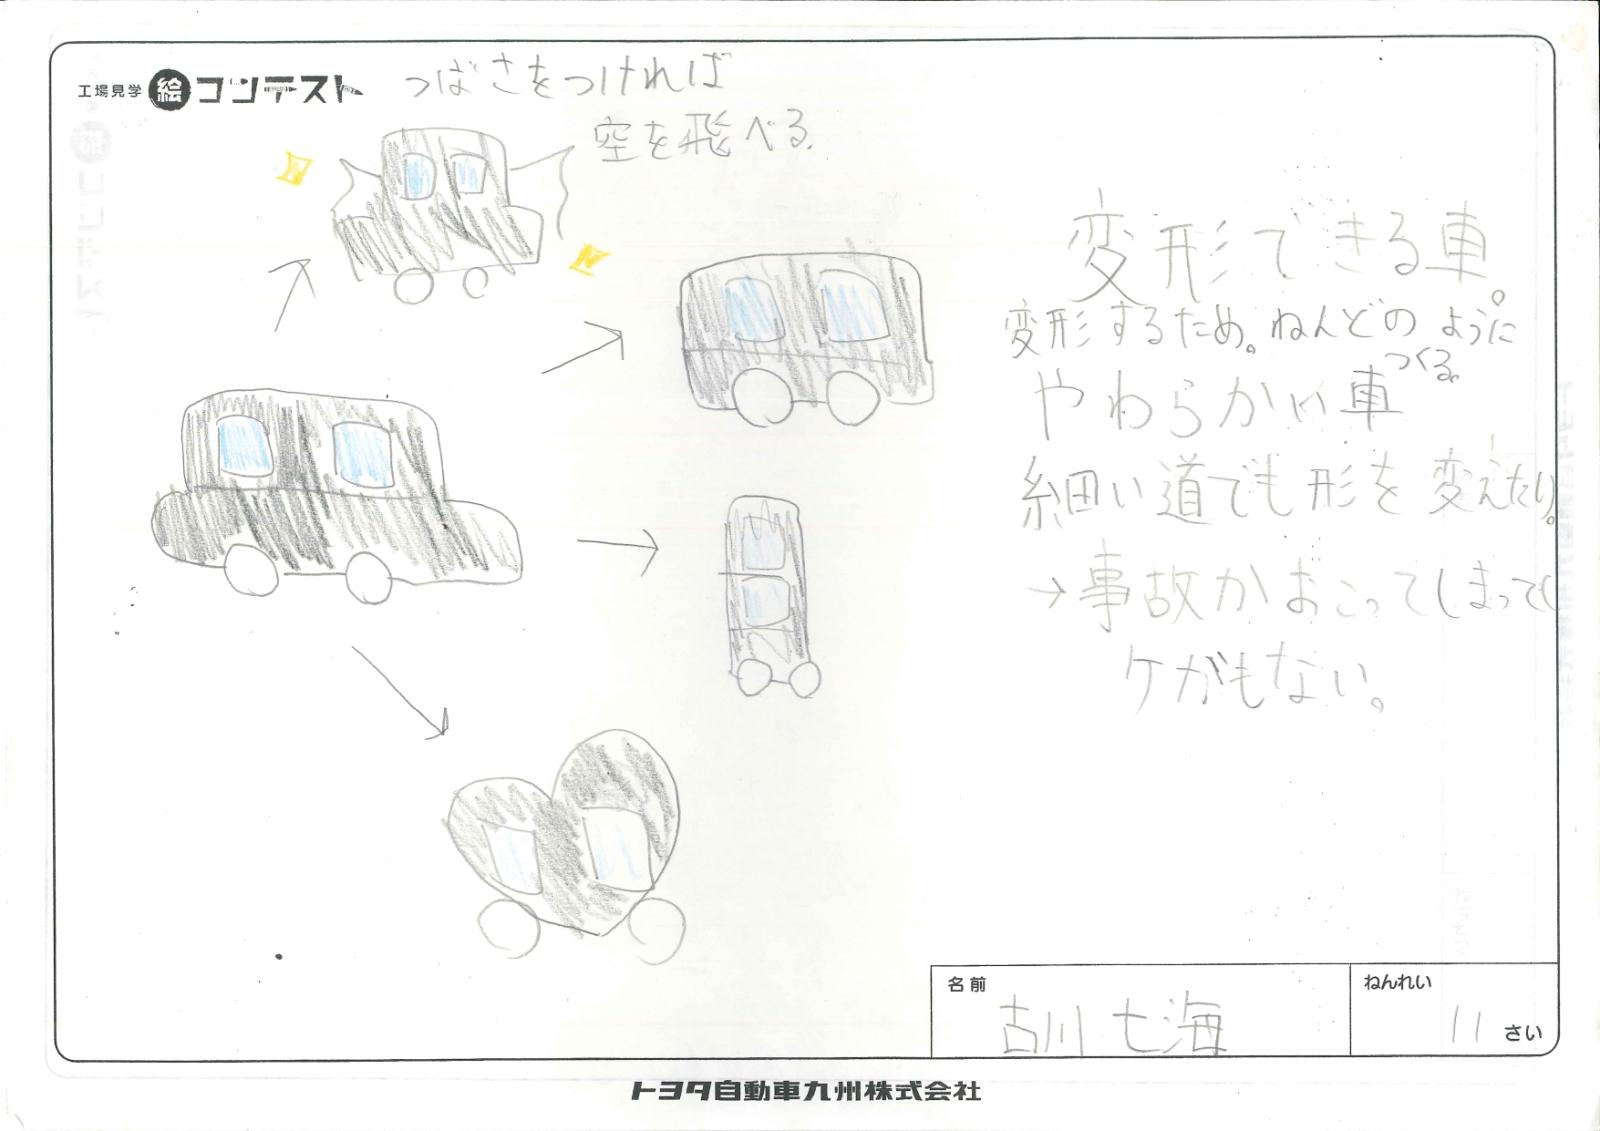 工場見学 絵 コンテスト
つばさをつければ
空を飛べる.
変形できる車。
変形するため。ねんどのように
つくる。
やわらかい車
細い道でも形を変えたり。
→事故がおこってしまっても
ケガもない。
名前
古川 七海
ねんれい
11 さい
トヨタ自動車九州株式会社